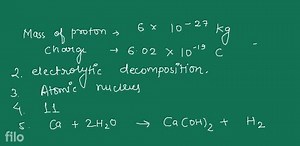 Mass of proton → 6 × 10⁻²⁷ kg
charge → 6.02 × 10⁻¹⁹ C
2. electrolytic decomposition.
3. Atomic nucleus
4. 11
5. Ca + 2H₂O → Ca(OH)₂ + H₂
filo